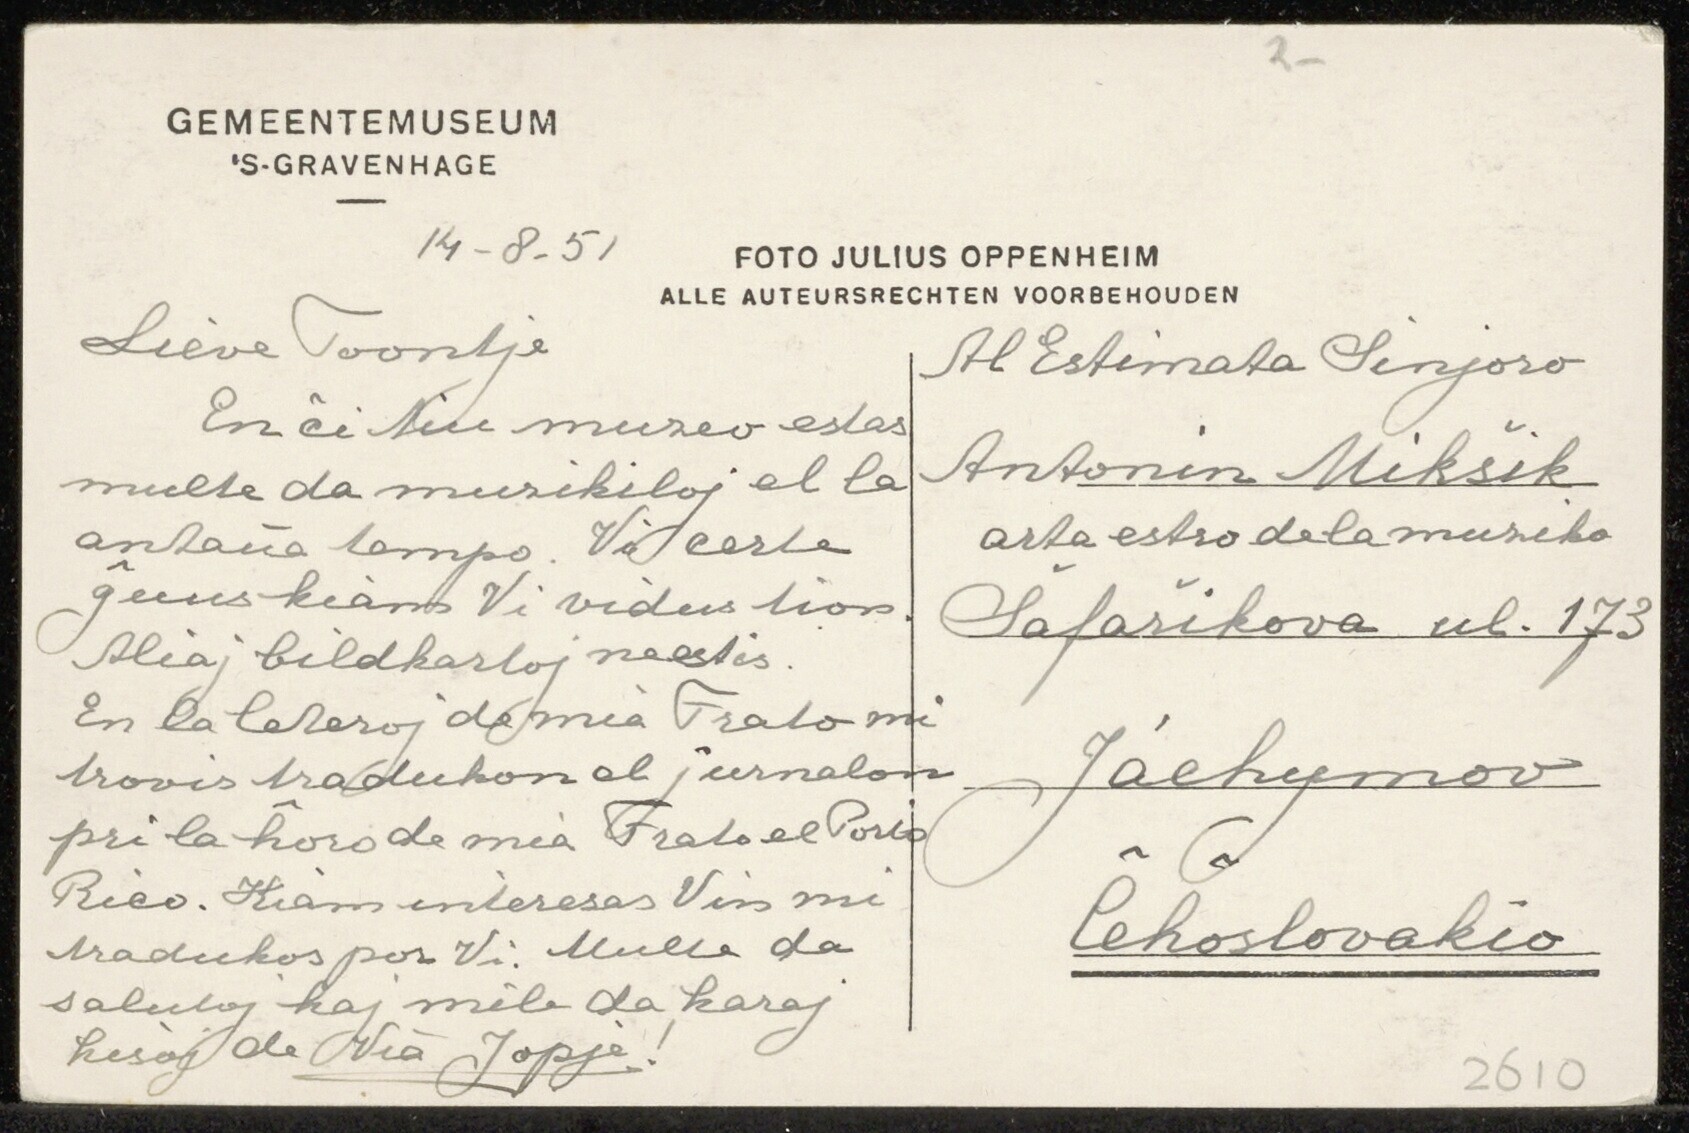 2-
GEMEENTEMUSEUM
'S-GRAVENHAGE
14-8-51
FOTO JULIUS OPPENHEIM
ALLE AUTEURSRECHTEN VOORBEHOUDEN
Lieve Toontje
En ĉi tiu muzeo estas
multe da muzikiloj el la
antaŭa tempo. Vi certe
ĝuus kiam Vi vidus tion.
Aliaj bildkartoj ne estis.
En la leteroj de mia Frato mi
trovis tradukon el ĵurnalon
pri la ĥoro de mia Frato el Porto
Rico. Kiam interesas Vin mi
tradukos por Vi. Multe da
salutoj kaj mile da karaj
kisoj de Via Jopje!
Al Estimata Sinjoro
Antonin Mikšik
arta estro de la muziko
Šafařikova ul. 173
Jáchymov
Ĉeĥoslovakio
2610